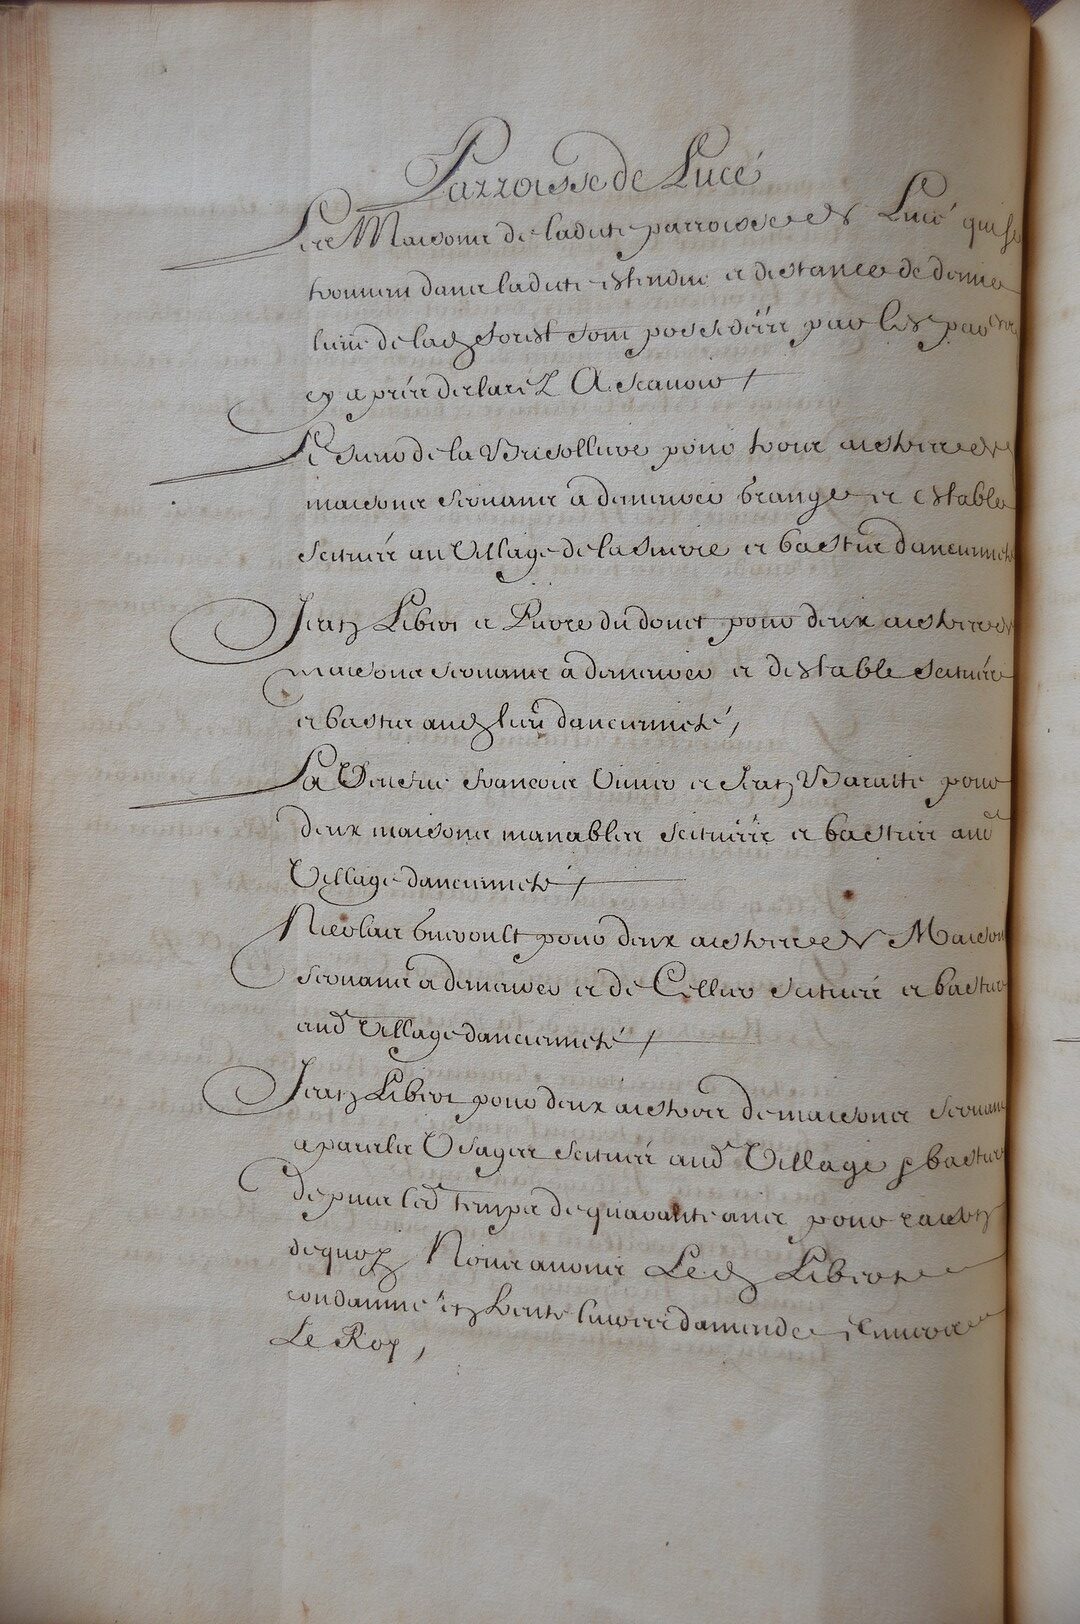 Parroisse de Lucé
Les Maisons de ladite parroisse de Lucé qui se
trouvent dans ladite estendue et distance de demie
lieue de lad forest sont possedées par les par
cy apres declarez A Scavoir
Le Sieur de la Brisolliere pour trois aistres de
maisons servants a demeurer grange et estable
scituées au Village de la et basties danciennete
Jean Libert et Pierre du douet pour deux aistres de
maisons servants a demeurer et destable scituées
et basties aud lieu dancienneté
La Veufve François et Jean Baratte pour
deux maisons manables scituées et basties aud
Village danciennete
Nicolas pour deux aistres de Maison
servants a demeurer et de Cellier scituées et basties
aud Village danciennete
Jean Libert pour deux aistres de maisons servans
a pareils Usages scituées aud Village basties
depuis led temps de quarante ans pour raison
dequoy Nous avons Led Libert
condamné en trente livres damende envers
Le Roy